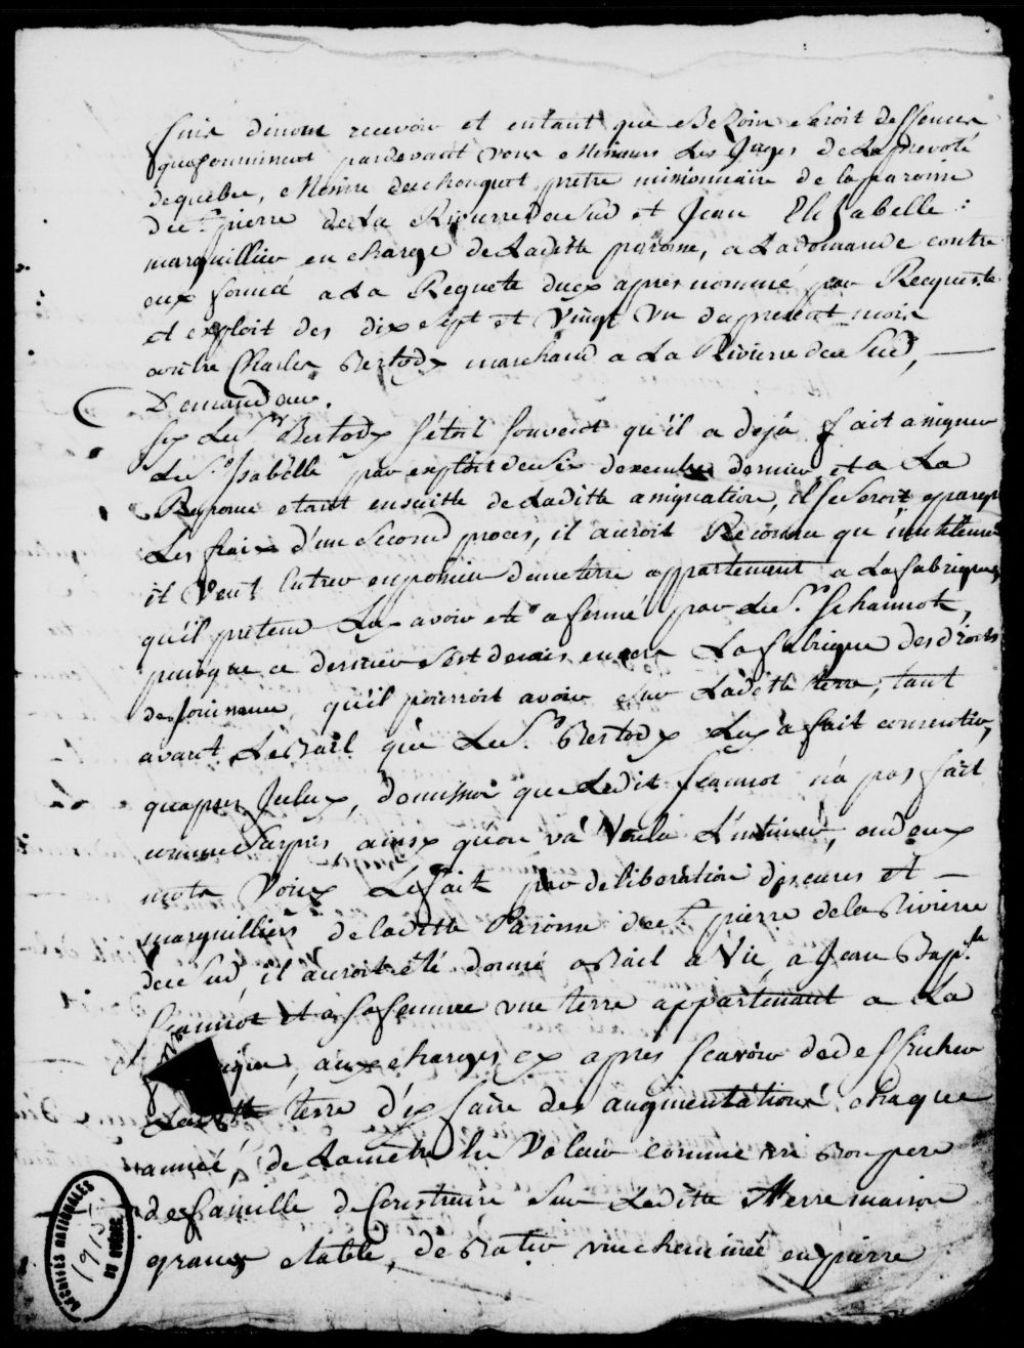 fins dinon recevoir et entant que Besoin seroit deffences
que fournissent pardevant vous Messieurs Les Juges de La prevoté
dequebec, Messire duchouquet pretre missionnaire de la paroisse
de St. pierre de La Rivierre du Sud et Jean Elizabelle :
marguillier en charge de Ladite paroisse, a La demande contre
eux formé a La Requete du cy apres nommé par Requeste
et exploit des dix sept et Vingt un du present mois
contre Charles Bertody marchand a La Riviere du Sud,
Demandeur.
Sy Le Sr. Bertody s'étoit souvenu qu'il a dejà fait assigner
Le Sr. Isabelle par exploit du six decembre dernier et a La
Reponse etant ensuitte de Ladite assignation, il se seroit epargné
Les frais d'un Second procès, il auroit Reconnu qu'inutilement
il Veut Entrer en possession d'une terre appartenant a La fabrique
qu'il pretend Luy avoir eté afermé par Le Sr. Jehannot,
puisque ce dernier s'est demis envers La fabrique des droits
de Jouissance qu'il pourroit avoir sur Ladite terre, tant
avant Le Bail que Le Sr. Bertody Luy a fait consentir,
qu'apres Iceluy, demission que Ledit Jeannot n'a pas fait
comme ainsy qu'on va Voula L'intimer, ou deux
mots Voicy Le fait par deliberation des curés et
marguilliers de Ladite Paroisse de St. pierre de la Riviere
du Sud, il auroit été donné a Bail a Vie a Jean Bapt.te
Jeannot et a sa femme une terre appartenant a La
fabrique, aux charges cy apres sçavoir de deffricher
Ladite terre d'y faire des augmentations chaque
année, de La mettre en Valeur comme un Bon pere
de famille de Construire sur Ladite terre maison
grange etable, de Batir une cheminée en pierre
ARCHIVES NATIONALES
DU QUÉBEC